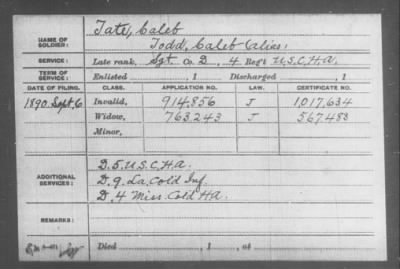 NAME OF SOLDIER: Tate, Caleb
Todd, Caleb (alias)
SERVICE: Late rank, Sgt Co. D, 4 Reg't U.S.C.H.A.
TERM OF SERVICE: Enlisted , 1 Discharged , 1
DATE OF FILING. CLASS. APPLICATION NO. LAW. CERTIFICATE NO.
1890 Sept. 6 Invalid, 914,856 J 1,017,634
Widow, 763,243 J 567483
Minor,
ADDITIONAL SERVICES: D. 5 U.S.C.H.A.
D. 9. La. Cold Inf.
D. 4 Miss. Cold H.A.
REMARKS:
Died , 1 , at